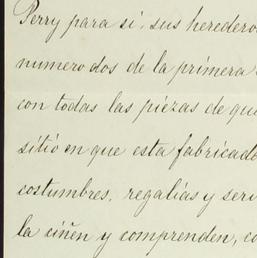 Perry para si, sus heredero
numero dos de la primera
con todas las piezas de que
sitio en que esta fabricado
costumbres, regalias y ser
la ciñen y comprenden, co